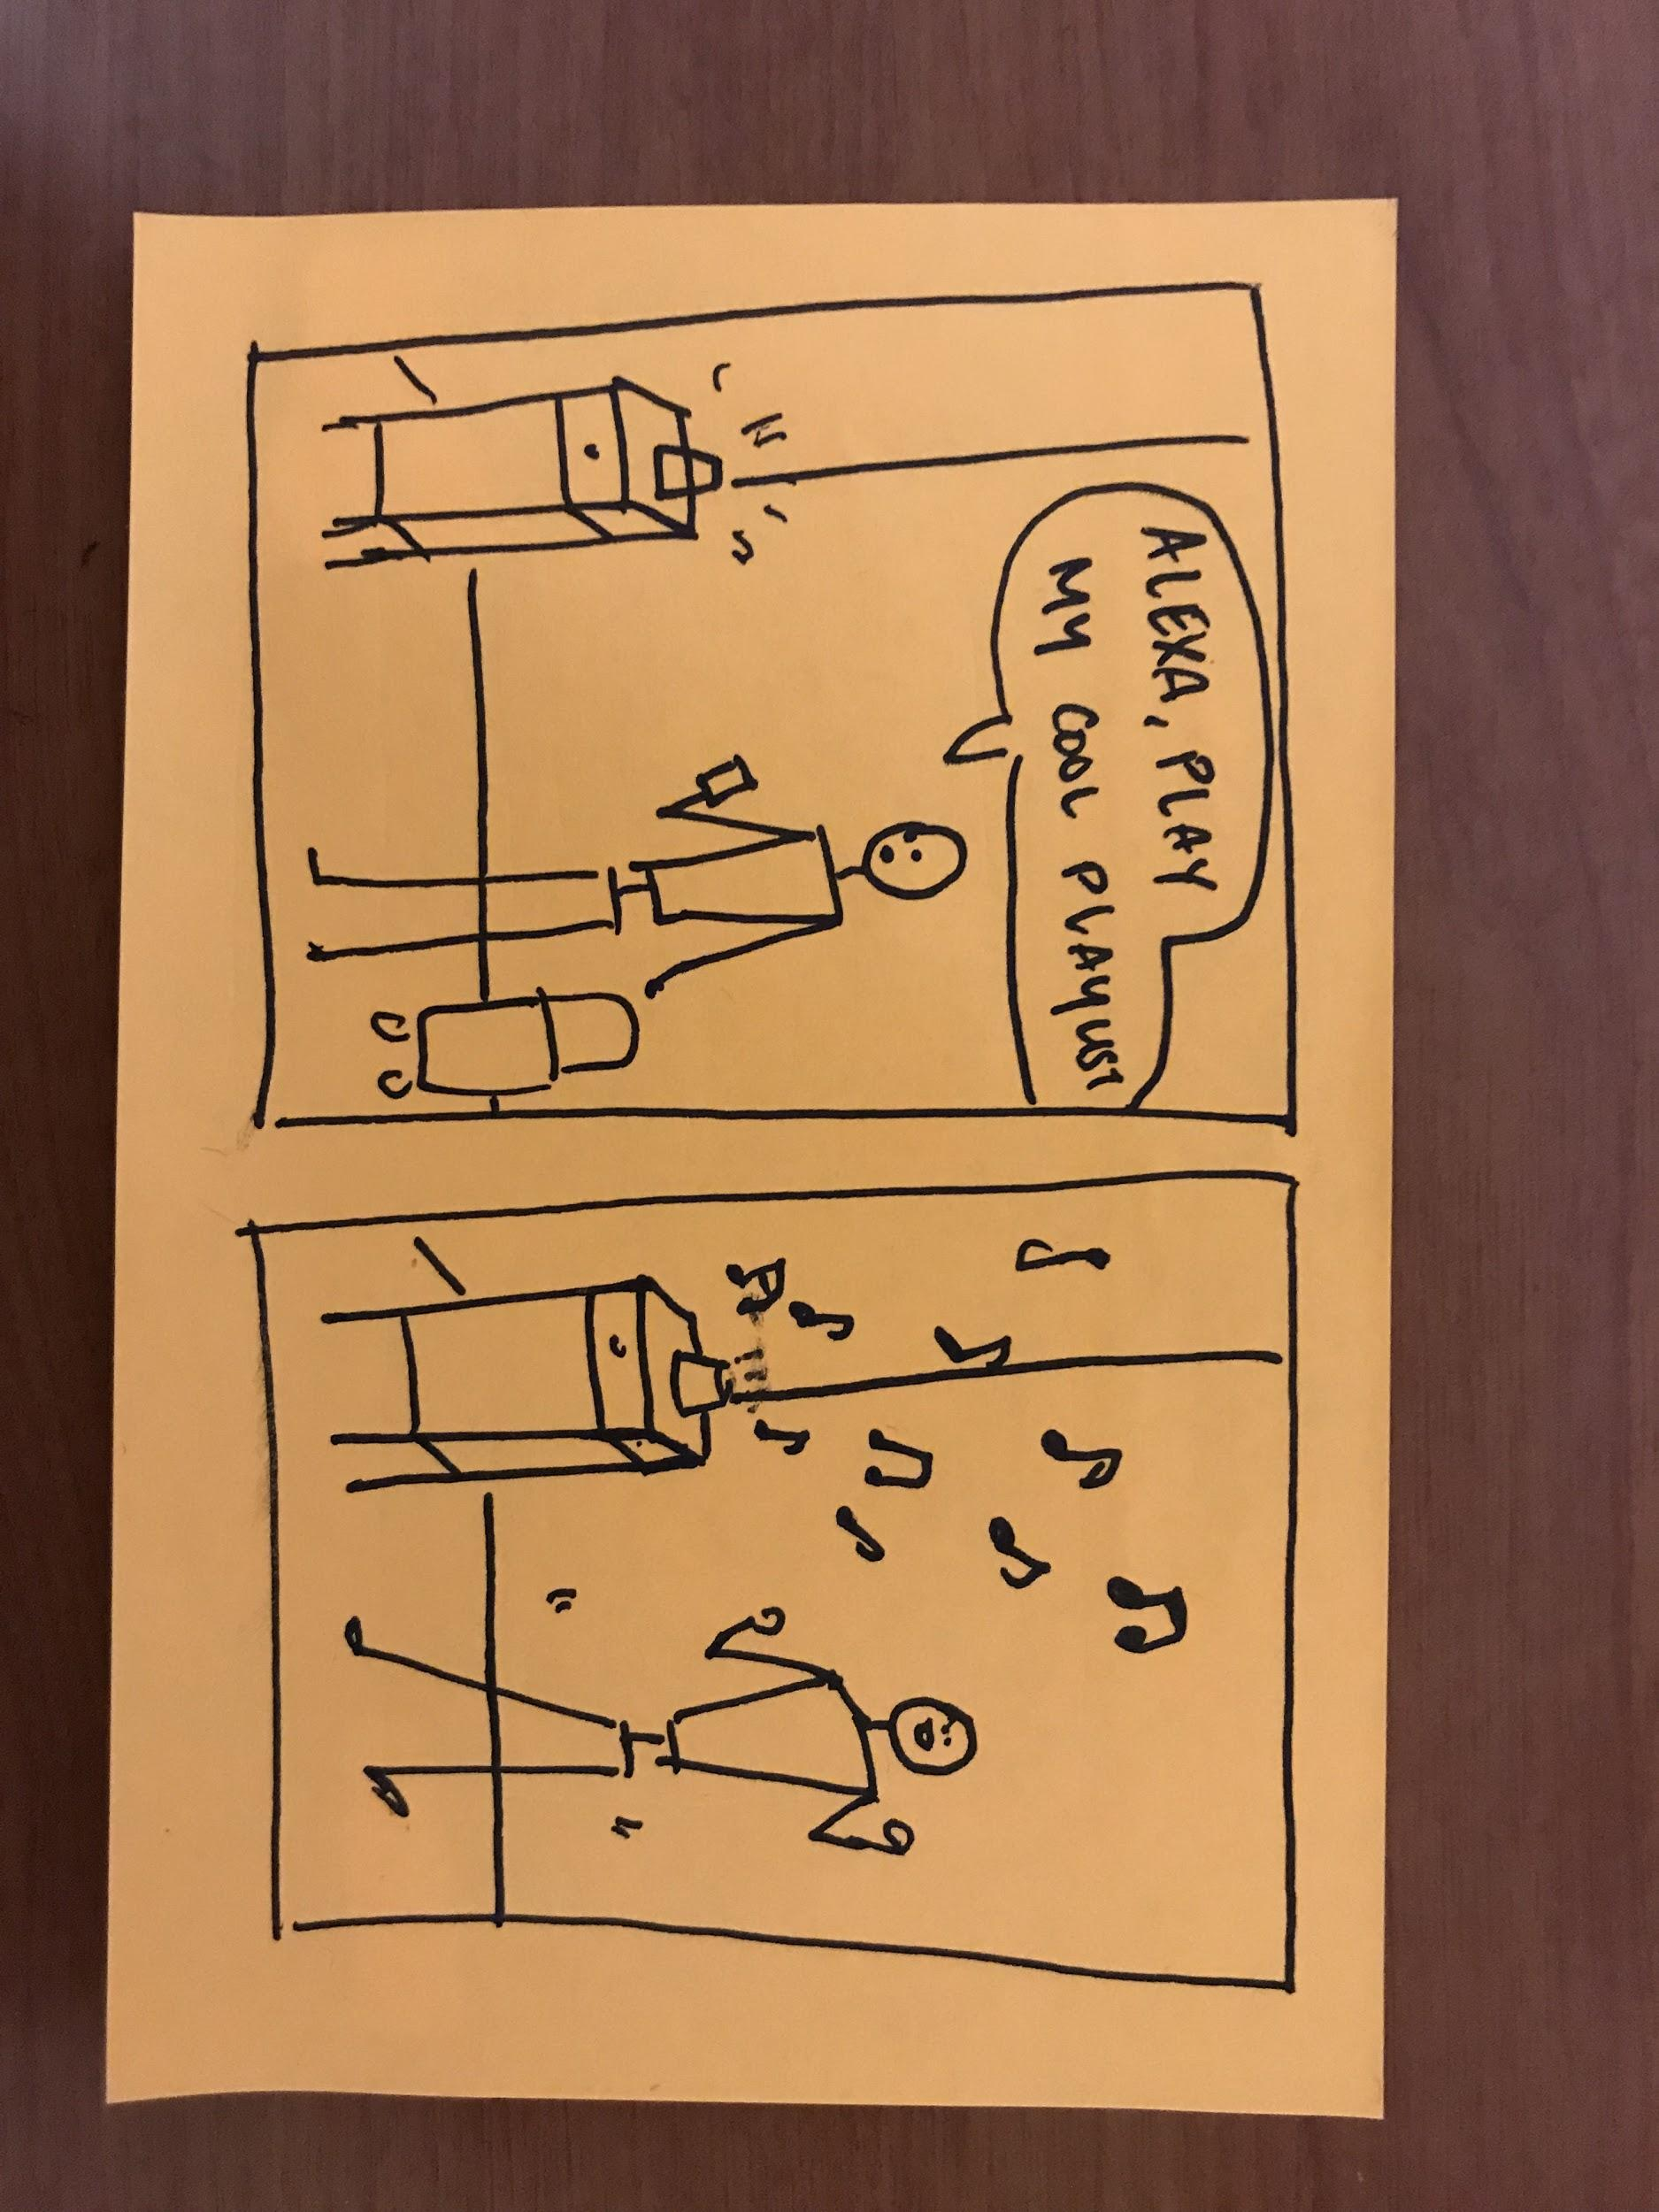 ALEXA, PLAY
MY COOL PLAYLIST